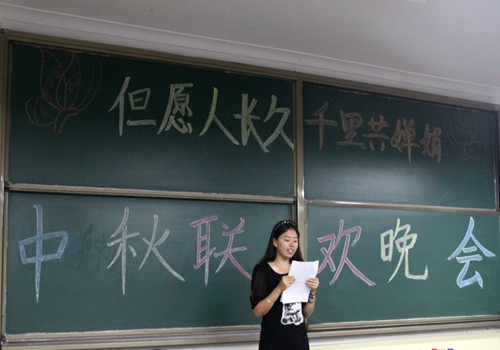 但愿人长久
千里共婵娟
中秋联欢晚会